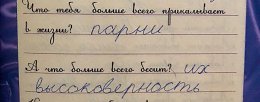 Что тебя больше всего прикалывает
в жизни? парни
А что больше всего бесит? их
высоковерность